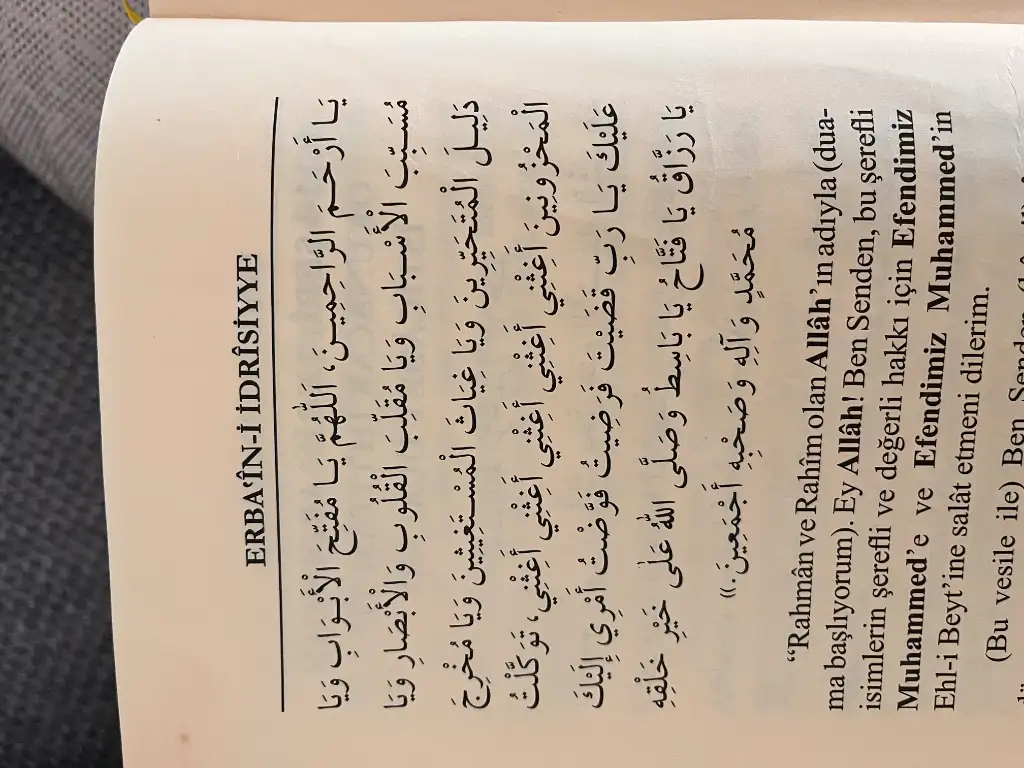 ERBA‘ÎN-İ İDRÎSİYYE
يَا أَرْحَمَ الرَّاحِمِينَ، اَللّٰهُمَّ يَا مُفَتِّحَ الْأَبْوَابِ وَيَا
مُسَبِّبَ الْأَسْبَابِ وَيَا مُقَلِّبَ الْقُلُوبِ وَالْأَبْصَارِ وَيَا
دَلِيلَ الْمُتَحَيِّرِينَ وَيَا غِيَاثَ الْمُسْتَغِيثِينَ وَيَا مُخْرِجَ
الْمَحْزُونِينَ أَغِثْنِي أَغِثْنِي أَغِثْنِي أَغِثْنِي أَغِثْنِي، تَوَكَّلْتُ
عَلَيْكَ يَا رَبِّ قَضَيْتَ فَرَضِيتُ فَوَّضْتُ أَمْرِي إِلَيْكَ
يَا رَزَّاقُ يَا فَتَّاحُ يَا بَاسِطُ وَصَلَّى اللّٰهُ عَلٰى خَيْرِ خَلْقِهِ
مُحَمَّدٍ وَآلِهِ وَصَحْبِهِ أَجْمَعِينَ.»
“Rahmân ve Rahîm olan Allâh’ın adıyla (dua-
ma başlıyorum). Ey Allâh! Ben Senden, bu şerefli
isimlerin şerefli ve değerli hakkı için Efendimiz
Muhammed’e ve Efendimiz Muhammed’in
Ehl-i Beyt’ine salât etmeni dilerim.
(Bu vesile ile) Ben Senden